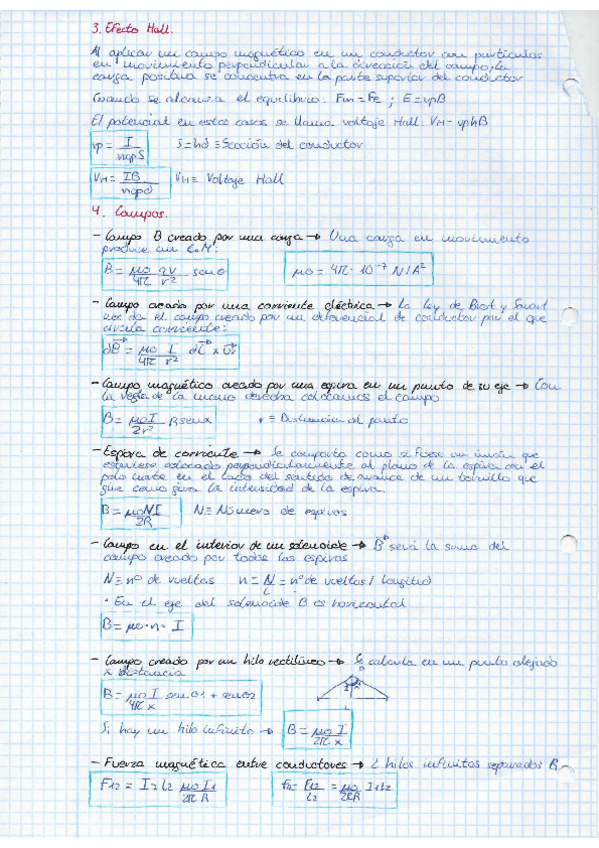 3. Efecto Hall.
Al aplicar un campo magnético en un conductor con partículas
en movimiento perpendicular a la dirección del campo, la
carga positiva se concentra en la parte superior del conductor
Cuando se alcanza el equilibrio: Fm = FE ; E = vpB
El potencial en estos casos se llama voltaje Hall: VH = vphB
vp = I / nqpS S = hd ≡ Sección del conductor
VH = IB / nqpd VH ≡ Voltaje Hall
4. Campos.
- Campo B creado por una carga → Una carga en movimiento
produce un C.M:
B = μo/4π qv/r² senθ μo = 4π · 10⁻⁷ N/A²
- Campo creado por una corriente eléctrica → La ley de Biot y Savart
nos da el campo creado por un diferencial de conductor por el que
circula corriente:
dB = μo/4π I/r² dL x Ur
- Campo magnético creado por una espira en un punto de su eje → Con
la regla de la mano derecha colocamos el campo
B = μoI/2r² R senα r ≡ Distancia al punto
- Espira de corriente → Se comporta como si fuese un imán que
estuviese colocado perpendicularmente al plano de la espira con el
polo norte en el lado del sentido de avance de un tornillo que
gire como gira la intensidad de la espira.
B = μoNI/2R N ≡ Número de espiras
- Campo en el interior de un solenoide → B será la suma del
campo creado por todas las espiras
N ≡ nº de vueltas n = N/L = nº de vueltas / longitud
· En el eje del solenoide B es horizontal
B = μo · n · I
- Campo creado por un hilo rectilíneo → Se calcula en un punto alejado
x distancia
B = μo/4π I/x senθ1 + senθ2
Si hay un hilo infinito → B = μo/2π I/x
- Fuerza magnética entre conductores → 2 hilos infinitos separados R
F12 = I2 L2 μo I1/2πR f12 = F12/L2 = μo/2πR I1I2